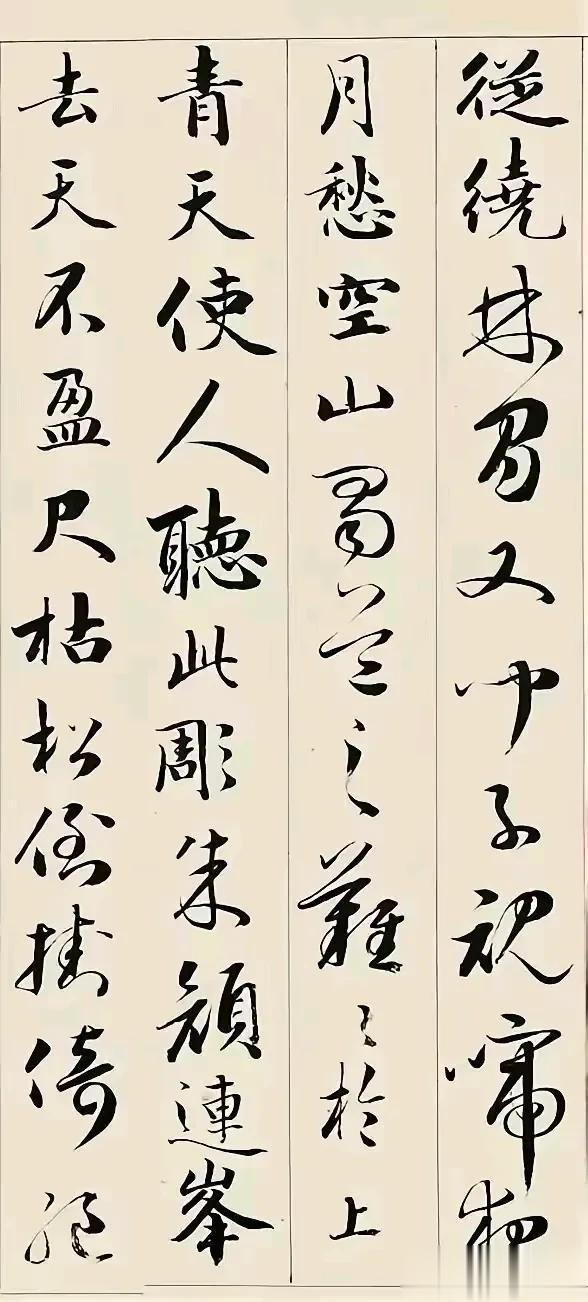 從繞林間又聞子規啼夜
月愁空山蜀道之難〻於上
青天使人聽此彫朱顏連峯
去天不盈尺枯松倒掛倚絕